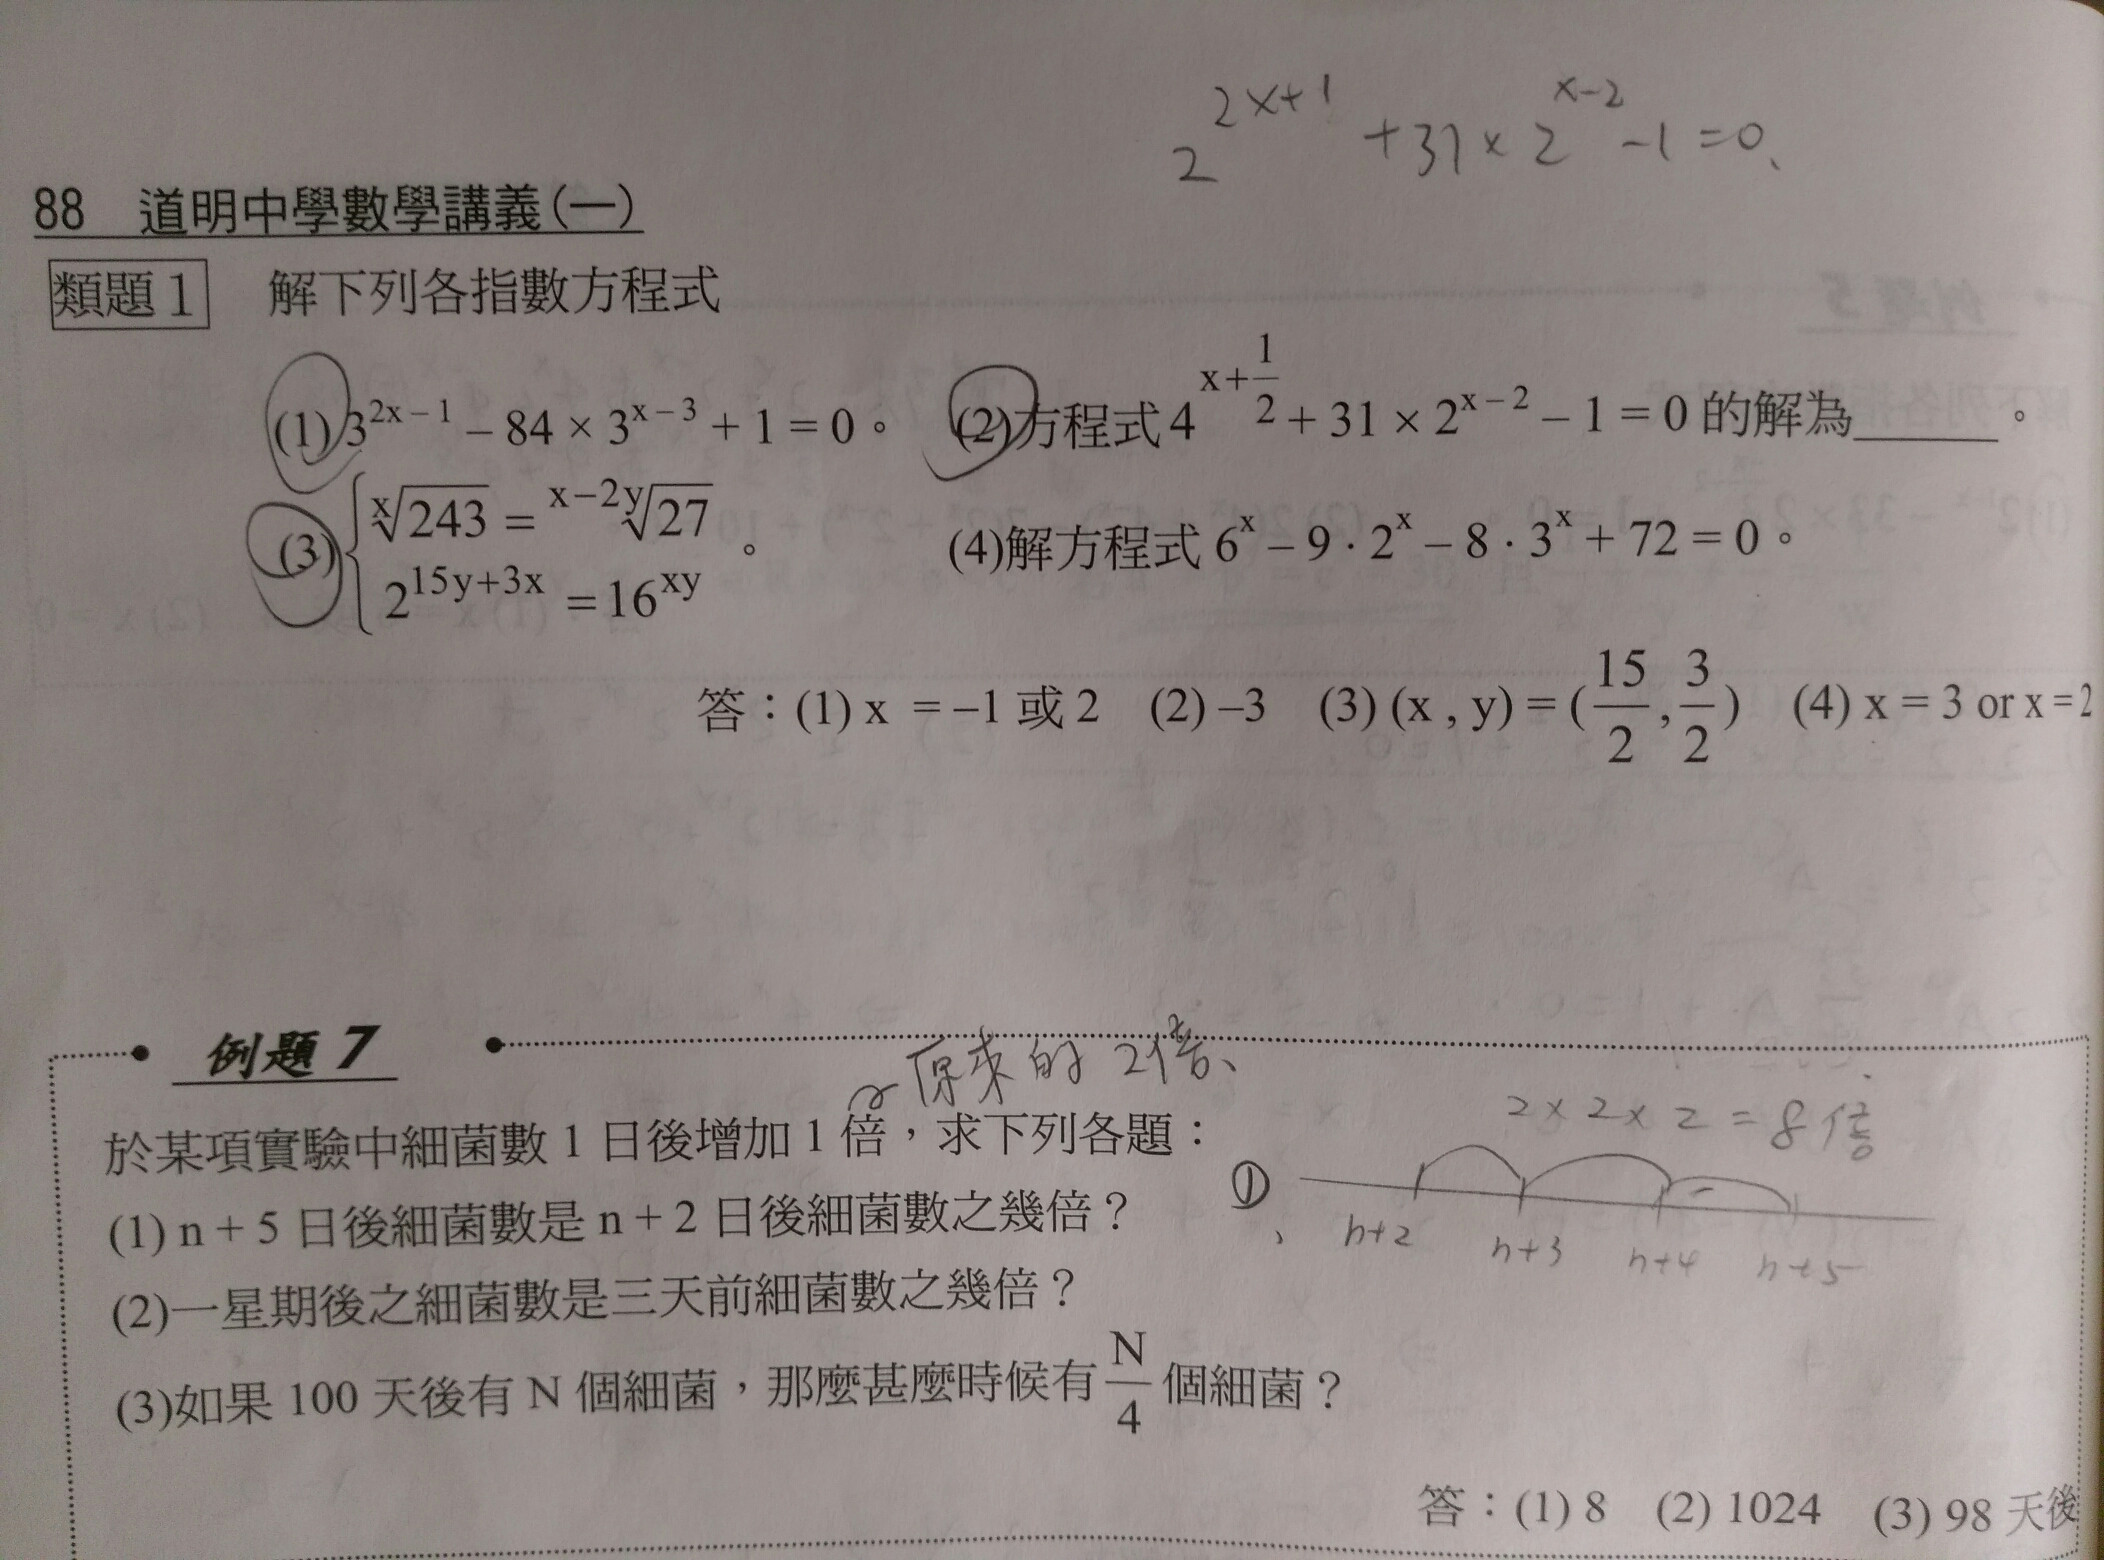 2^{2x+1} + 31 × 2^{x-2} - 1 = 0、
88 道明中學數學講義(一)
類題1 解下列各指數方程式
(1) 3^{2x-1} - 84 × 3^{x-3} + 1 = 0。 (2)方程式 4^{x+\frac{1}{2}} + 31 × 2^{x-2} - 1 = 0 的解為______。
(3) { \sqrt[x]{243} = \sqrt[x-2y]{27}
2^{15y+3x} = 16^{xy} 。 (4)解方程式 6^x - 9 · 2^x - 8 · 3^x + 72 = 0。
答：(1) x = -1 或 2 (2) -3 (3) (x , y) = (\frac{15}{2}, \frac{3}{2}) (4) x = 3 or x = 2
例題 7
原來的 2倍、
於某項實驗中細菌數 1 日後增加 1 倍，求下列各題：
2 × 2 × 2 = 8 倍
(1) n + 5 日後細菌數是 n + 2 日後細菌數之幾倍？
① n+2 n+3 n+4 n+5
(2)一星期後之細菌數是三天前細菌數之幾倍？
(3)如果 100 天後有 N 個細菌，那麼甚麼時候有 \frac{N}{4} 個細菌？
答：(1) 8 (2) 1024 (3) 98 天後